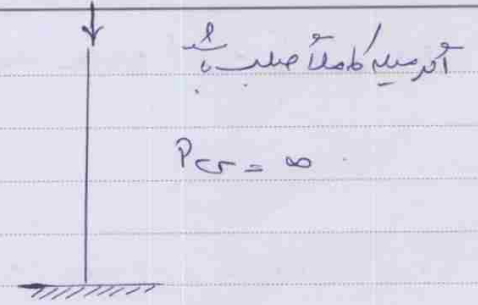 اگر میله کاملاً صلب باشد
Pcr = ∞